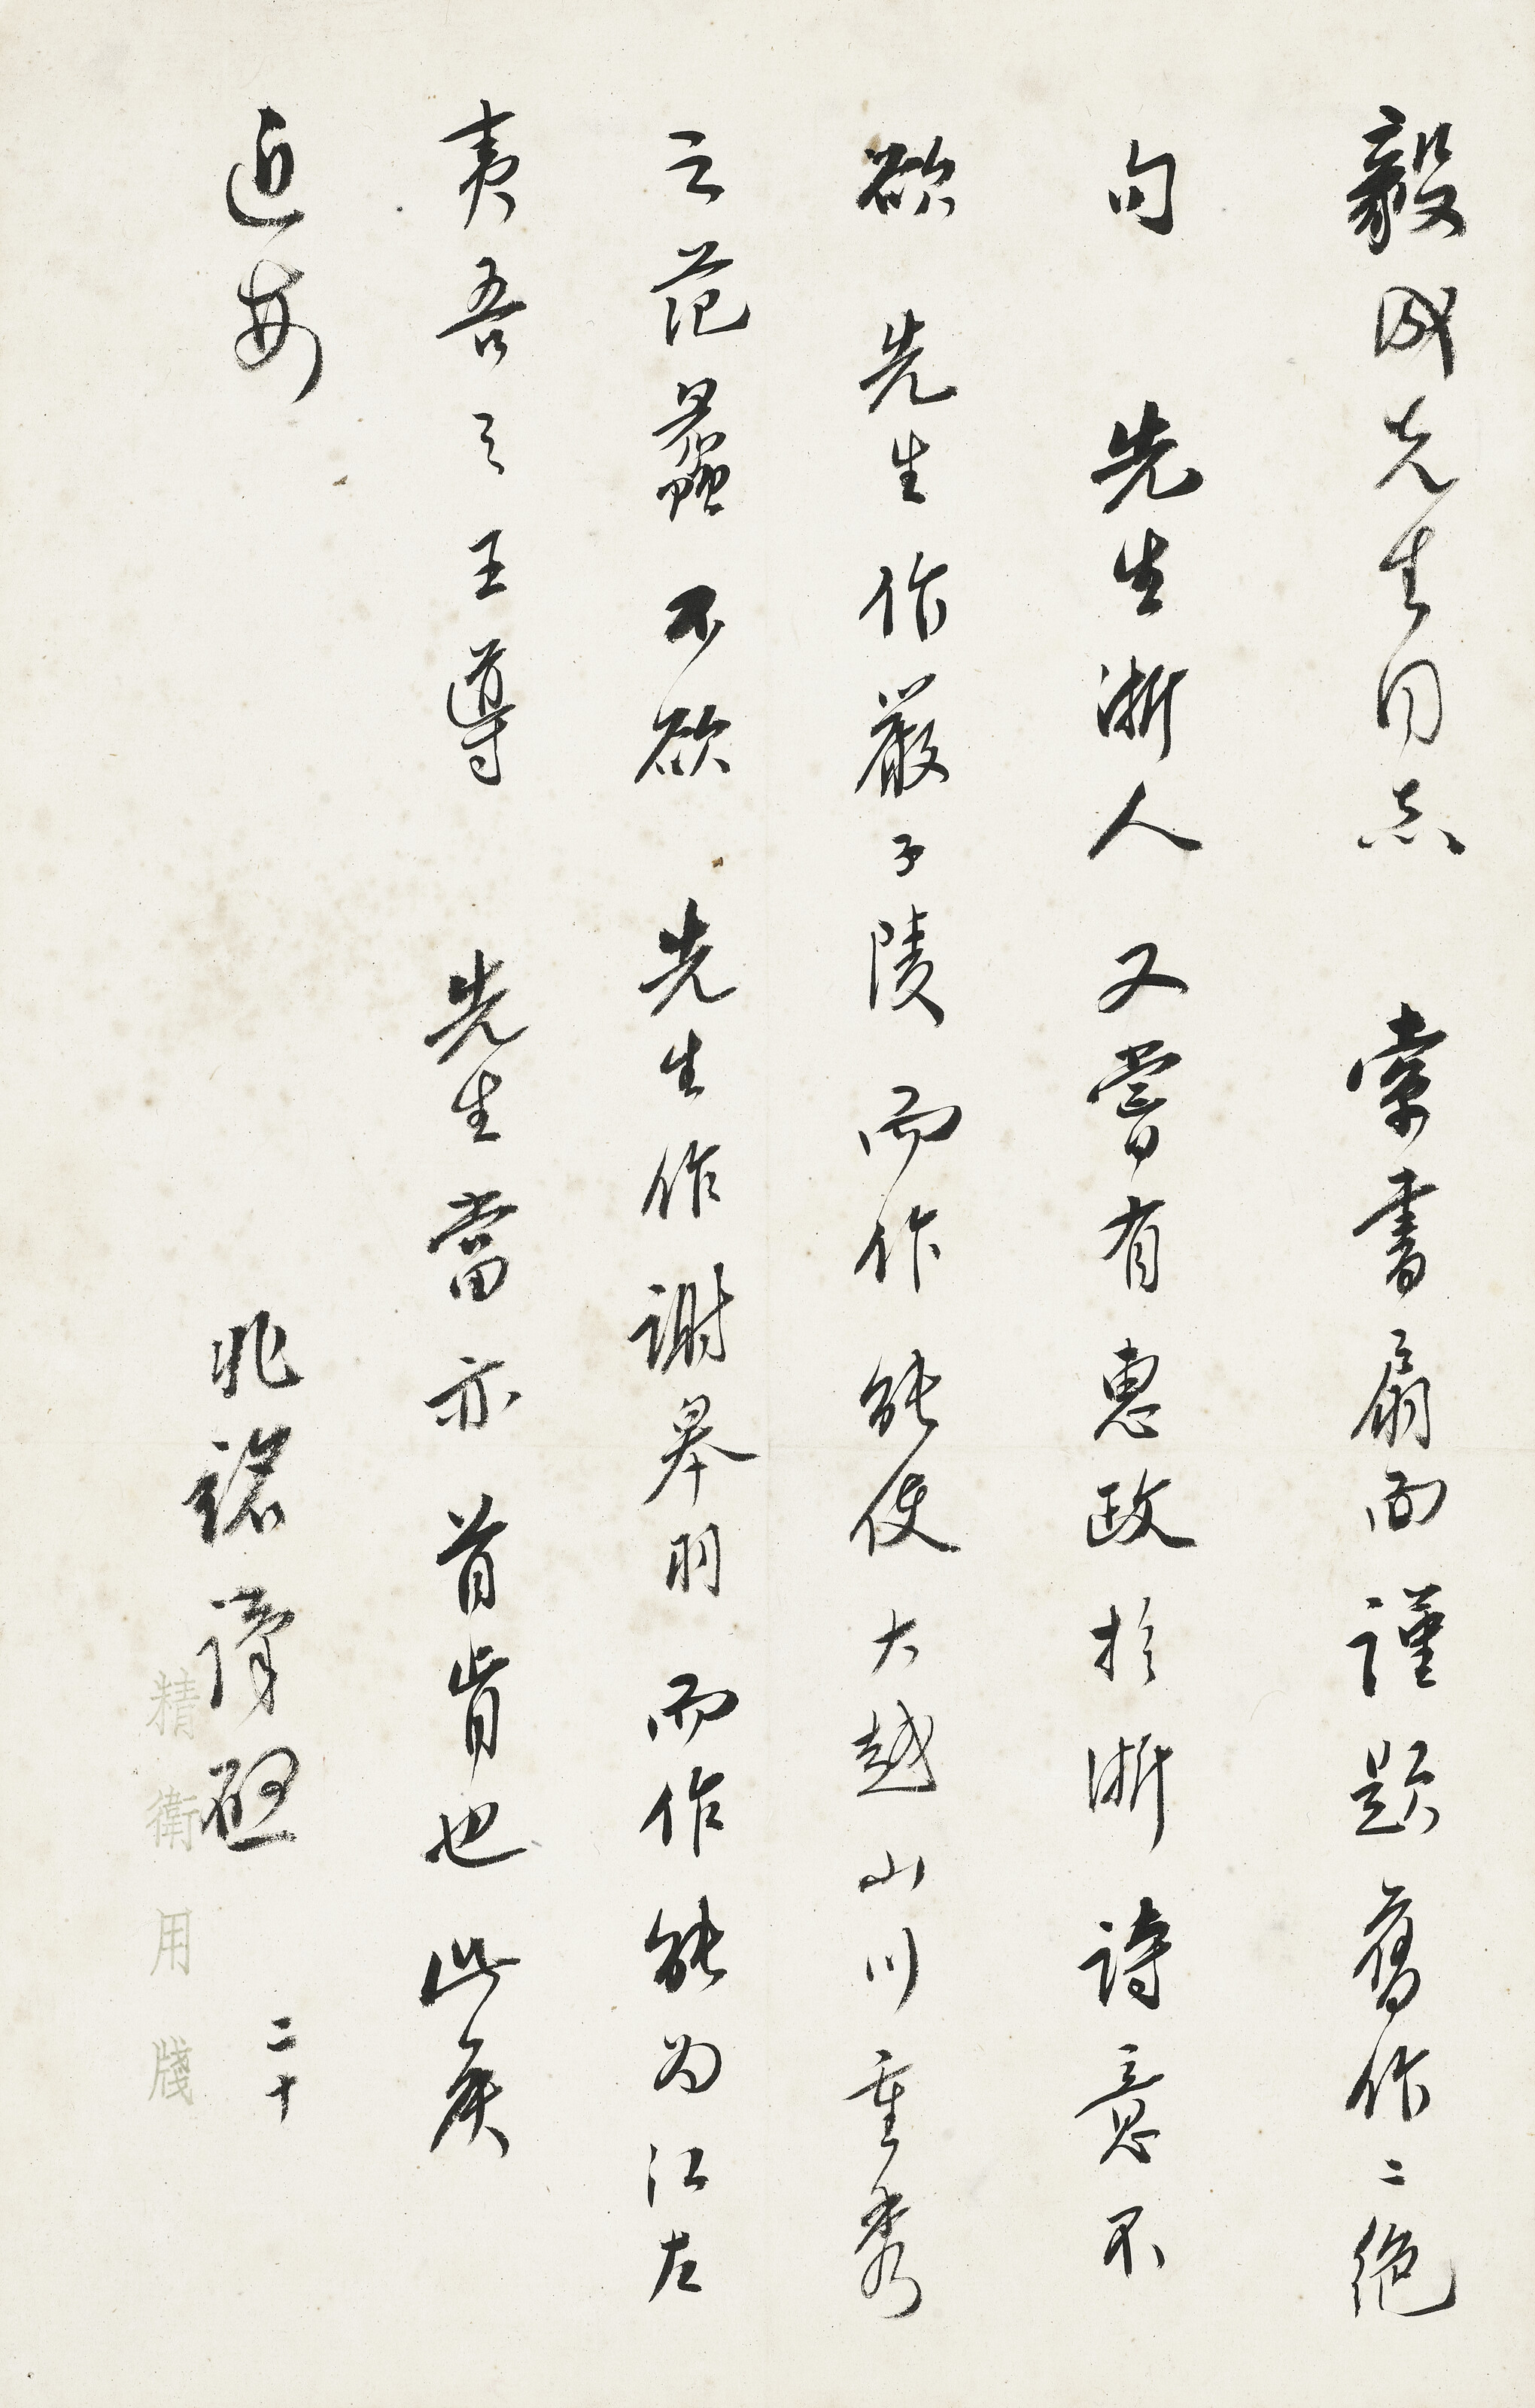 毅成先生同志 索書扇面謹題舊作二絕
句 先生浙人又嘗有惠政於浙詩意不
欲 先生作嚴子陵而作能使大越山川重秀
之范蠡不欲 先生作謝皋羽而作能為江左
夷吾之王導 先生當亦首肯也此矦
近安
兆銘謹啟 二十
精衛用牋